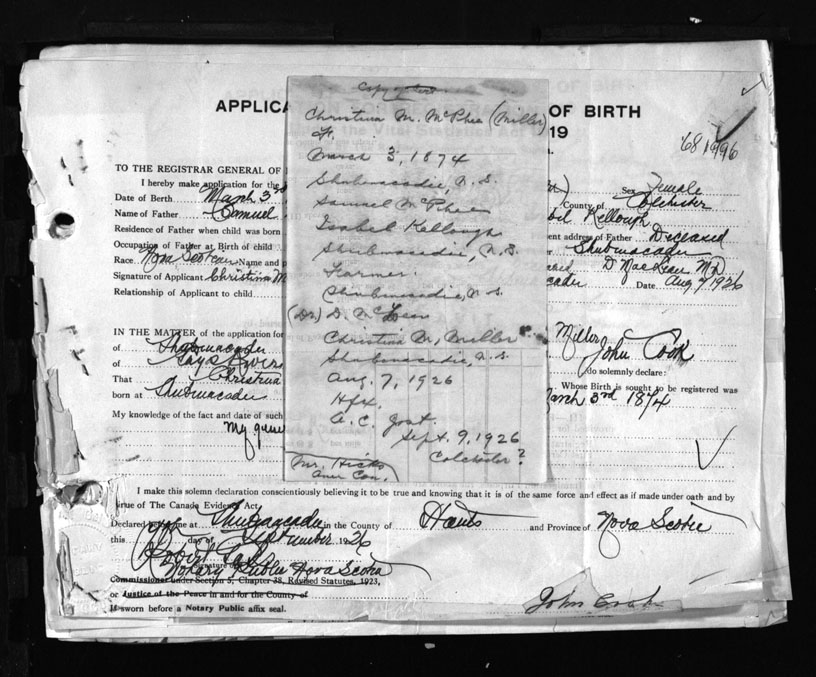 APPLICA
OF BIRTH
19
681996
TO THE REGISTRAR GENERAL OF
I hereby make application for the
Sex Female
Date of Birth March 3rd
County of Colchester
Name of Father Samuel
Kellough
Residence of Father when child was born
ent address of Father Deceased
Occupation of Father at Birth of child
Shubenacadie
Race Nova Scotian Name and p
D MacLean MD
Signature of Applicant Christina M
cadie Date. Aug 7/1926
Relationship of Applicant to child
Copy of
Christina M. McPhee (Miller)
F.
March 3, 1874
Shubenacadie, N.S.
Samuel McPhee
Isabel Kellough
Shubenacadie, N.S.
Farmer.
Shubenacadie, N.S.
(Dr.) D. McLean
Christina M. Miller
Shubenacadie, N.S.
Aug. 7, 1926
Hfx.
A.C. Jost.
Sept. 9, 1926
Colchester?
Mr. Hicks
Amer Con.
IN THE MATTER of the application for
Miller
of Shubenacadie
John Cook
of Gays River
do solemnly declare:
That Christina
Whose Birth is sought to be registered was
born at Shubenacadie
March 3rd 1874
My knowledge of the fact and date of such
My
I make this solemn declaration conscientiously believing it to be true and knowing that it is of the same force and effect as if made under oath and by
virtue of The Canada Evidence Act.
Declared before me at Shubenacadie in the County of Hants and Province of Nova Scotia
this day of September 1926
Robert
Signature
Notary Public Nova Scotia
Commissioner under Section 5, Chapter 38, Revised Statutes, 1923,
or Justice of the Peace in and for the County of
If sworn before a Notary Public affix seal.
John Cook